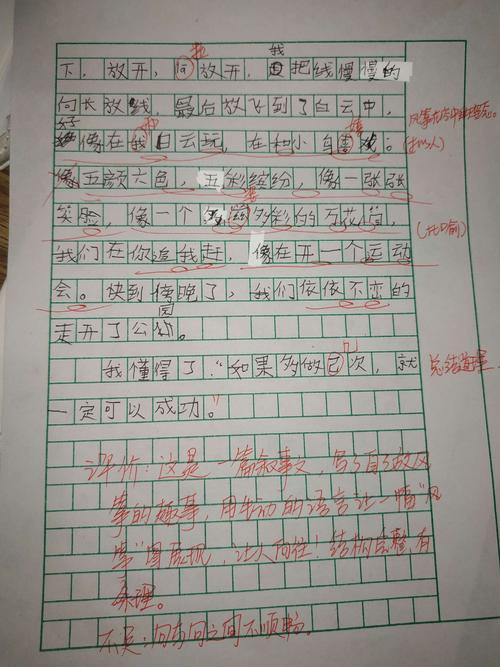 我
下，放开，放开，把线慢慢的
向长放线，最后放飞到了白云中，
好像在白云玩，在和小鸟
像五颜六色，五彩缤纷，像一张张
笑脸，像一个多彩的万花筒，
我们在你追我赶，像在开一个运动
会。快到傍晚了，我们依依不恋的
走开了公园。
我懂得了："如果多做几次，就
一定可以成功。"
(拟人)
(比喻)
总结道理
评价：这是一篇叙事文，写了自己放风
筝的趣事，用生动的语言让一幅"风
筝"图展现，让人向往！结构完整，有
条理。
不足：句与句之间不顺畅。